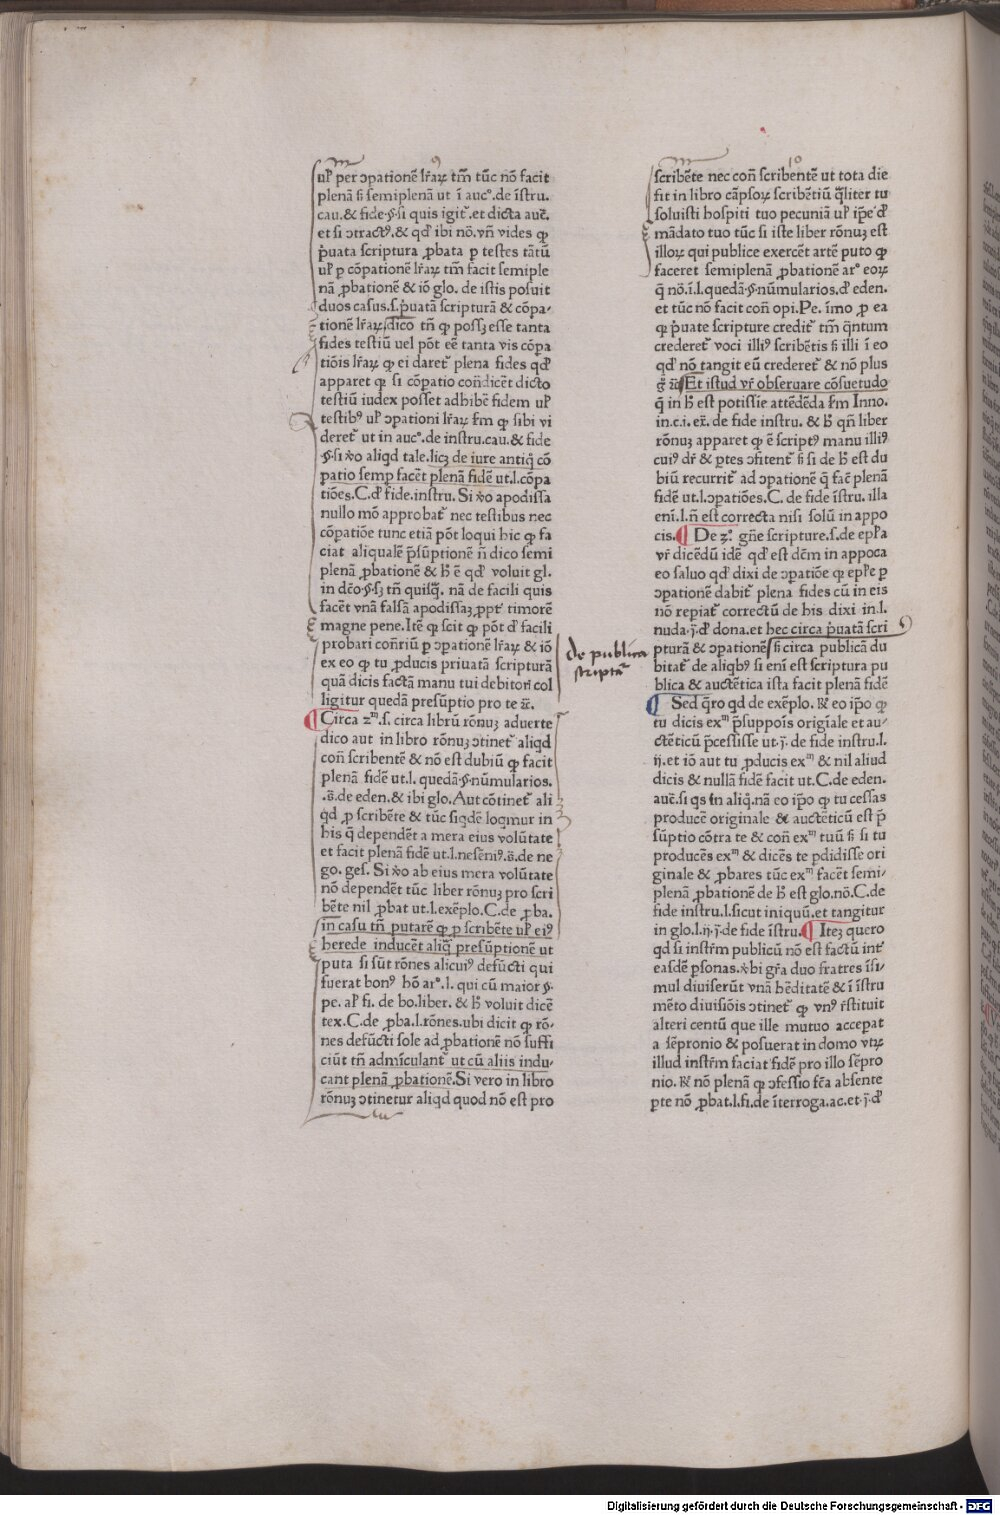 9
uꝉ per ↄpationē lr̄aꝝ tm̄ tūc nō facit
plenā s̄ semiplenā ut ī aucᵒ.de īstru.
cau.& fide·§·si quis igit᷑.et dicta auc̄.
et si ↄtractꝰ.& qd̛ ibi nō.vn̄ vides ꝙ
p̄uata scriptura ꝓbata ꝑ testes tātū
uꝉ ꝑ cōpationē lr̄aꝝ tm̄ facit semiple
nā ꝓbationē & iō glo. de istis posuit
duos casus.s.p̄uatā scripturā & cōpa-
tionē lr̄aꝝ dico tn̄ ꝙ possꝫ esse tanta
fides testiū uel pōt eē tanta vis cōpa
tiōis lr̄aꝝ ꝙ ei daret᷑ plena fides qd̛
apparet ꝙ si cōpatio con̄dicēt dicto
testiū iudex posset adhibē fidem uꝉ
testibꝰ uꝉ ↄpationi lr̄aꝝ s̄m ꝙ sibi vi
deret᷑ ut in aucᵒ.de instru.cau.& fide
·§·si ꝟo aliqd tale.licꝫ de iure antiq̄ cō
patio semp facēt plenā fidē ut.l.cōpa
tiōes.C.d̛ fide.instru. Si ꝟo apodissa
nullo mō approbat᷑ nec testibus nec
cōpatiōe tunc etiā pōt loqui hic ꝙ fa
ciat aliqualē p̄sūptionē n̄ dico semi
plenā ꝓbationē & h̄ ē qd̛ voluit gl.
in dc̄o·§·sꝫ tn̄ quisq̄. nā de facili quis
facēt vnā falsā apodissaꝫ ꝓpt᷑ timorē
magne pene.Itē ꝙ scit ꝙ pōt d̛ facili
probari con̄riū ꝑ ↄpationē lr̄aꝝ & iō
ex eo ꝙ tu ꝓducis priuatā scripturā
quā dicis factā manu tui debitoris col
ligitur quedā presūptio pro te &̄.
Circa zᵐ.s. circa librū rōnuꝫ aduerte
dico aut in libro rōnuꝫ ↄtinet᷑ aliqd
con̄ scribentē & nō est dubiū ꝙ facit
plenā fidē ut.l. quedā·§·nūmularios.
.s̄.de eden.& ibi glo. Aut cōtinet᷑ ali
qd ꝓ scribēte & tūc siqdē loqmur in
his q̄ dependēt a mera eius volūtate
et facit plenā fidē ut.l.nesēniꝰ.s̄.de ne
go. ges. Si ꝟo ab eius mera volūtate
nō dependēt tūc liber rōnuꝫ pro scri
bēte nil ꝓbat ut.l.exēplo.C.de ꝓba.
in casu tn̄ putarē ꝙ ꝓ scribēte uꝉ eiꝰ
herede inducēt aliq̄ presūptionē ut
puta si sūt rōnes alicuiꝰ defūcti qui
fuerat bonꝰ hō arᵒ.l. qui cū maior §·
pe. aꝉ si. de bo.liber. & h̄ voluit dicē
tex.C.de ꝓba.l.rōnes.ubi dicit ꝙ rō-
nes defūcti sole ad ꝓbationē nō suffi
ciūt tn̄ admīculant᷑ ut cū aliis indu-
cant plenā ꝓbationē.Si vero in libro
rōnuꝫ ↄtinetur aliqd quod nō est pro
de publica
scriptā
10
scribēte nec con̄ scribentē ut tota die
fit in libro cāpsoꝝ scribētiū q̄liter tu
soluisti hospiti tuo pecuniā uꝉ ip̄e d̛
mādato tuo tūc si iste liber rōnuꝫ est
illoꝝ qui publice exercēt artē puto ꝙ
faceret semiplenā ꝓbationē arᵒ eoꝝ
q̄ nō.ī.l.quedā·§·nūmularios.d̛ eden.
et tūc nō facit con̄ opi.Pe. īmo ꝓ ea
ꝙ p̄uate scripture credit᷑ tm̄ q̄ntum
crederet᷑ voci illiꝰ scribētis s̄ illi ī eo
qd̛ nō tangit eū crederet᷑ & nō plus
g̊ &̄ Et istud vr̄ obseruare cōsuetudo
q̄ in h̄ est potissīe attēdēda s̄m Inno.
in.c.i.ex̄. de fide instru. & h̄ qn̄ liber
rōnuꝫ apparet ꝙ ē scriptꝰ manu illiꝰ
cuiꝰ dr̄ & ꝑtes ↄfitent᷑ s̄ si de h̄ est du
biū recurrit᷑ ad ↄpationē q̄ fac̄ plenā
fidē ut.l.ↄpatiōes.C. de fide īstru. illa
eni.l.n̄ est correcta nisi solū in appo
cis. De zᵒ. gn̄e scripture.s.de epꝉa
vr̄ dicēdū idē qd̛ est dc̄m in appoca
eo saluo qd̛ dixi de ↄpatiōe ꝙ epꝉe ꝑ
ↄpationē dabit᷑ plena fides cū in eis
nō repiat᷑ correctū de his dixi in.l.
nuda.j̄.d̛ dona.et hec circa p̄uatā scri
pturā & ↄpationē s̄ circa publicā du
bitat᷑ de aliqbꝰ si eni est scriptura pu
blica & auctētica ista facit plenā fidē
Sed q̄ro qd de exēplo. R̄ eo ip̄o ꝙ
tu dicis exᵐ p̄suppois origīale et au-
ctēticū p̄cessisse ut.j̄. de fide instru.l.
ij.et iō aut tu ꝓducis exᵐ & nil aliud
dicis & nullā fidē facit ut.C.de eden.
auc̄.si qs in aliq̄.nā eo ip̄o ꝙ tu cessas
producē originale & auctēticū est p̄
sūptio cōtra te & con̄ exᵐ tuū s̄ si tu
producēs exᵐ & dicēs te pdidisse ori
ginale & ꝓbares tūc exᵐ facēt semi-
plenā ꝓbationē de h̄ est glo.nō.C.de
fide instru.l.sicut iniquū.et tangitur
in glo.l.ij.j̄.de fide īstru. Iteꝫ quero
qd si instr̄m publicū nō est factū int᷑
easdē ꝑsonas.ꝟbi gr̄a duo fratres īsi-
mul diuiserūt vnā hēditatē & ī īstru
mēto diuisiōis ↄtinet᷑ ꝙ vnꝰ r̄stituit
alteri centū que ille mutuo accepat
a sēpronio & posuerat in domo vtꝝ
illud instr̄m faciat fidē pro illo sēpro
nio. R̄ nō plenā ꝙ ↄfessio fc̄a absente
ꝑte nō ꝓbat.l.fi.de īterroga.ac.et.j̄.d̛
Digitalisierung gefördert durch die Deutsche Forschungsgemeinschaft - DFG